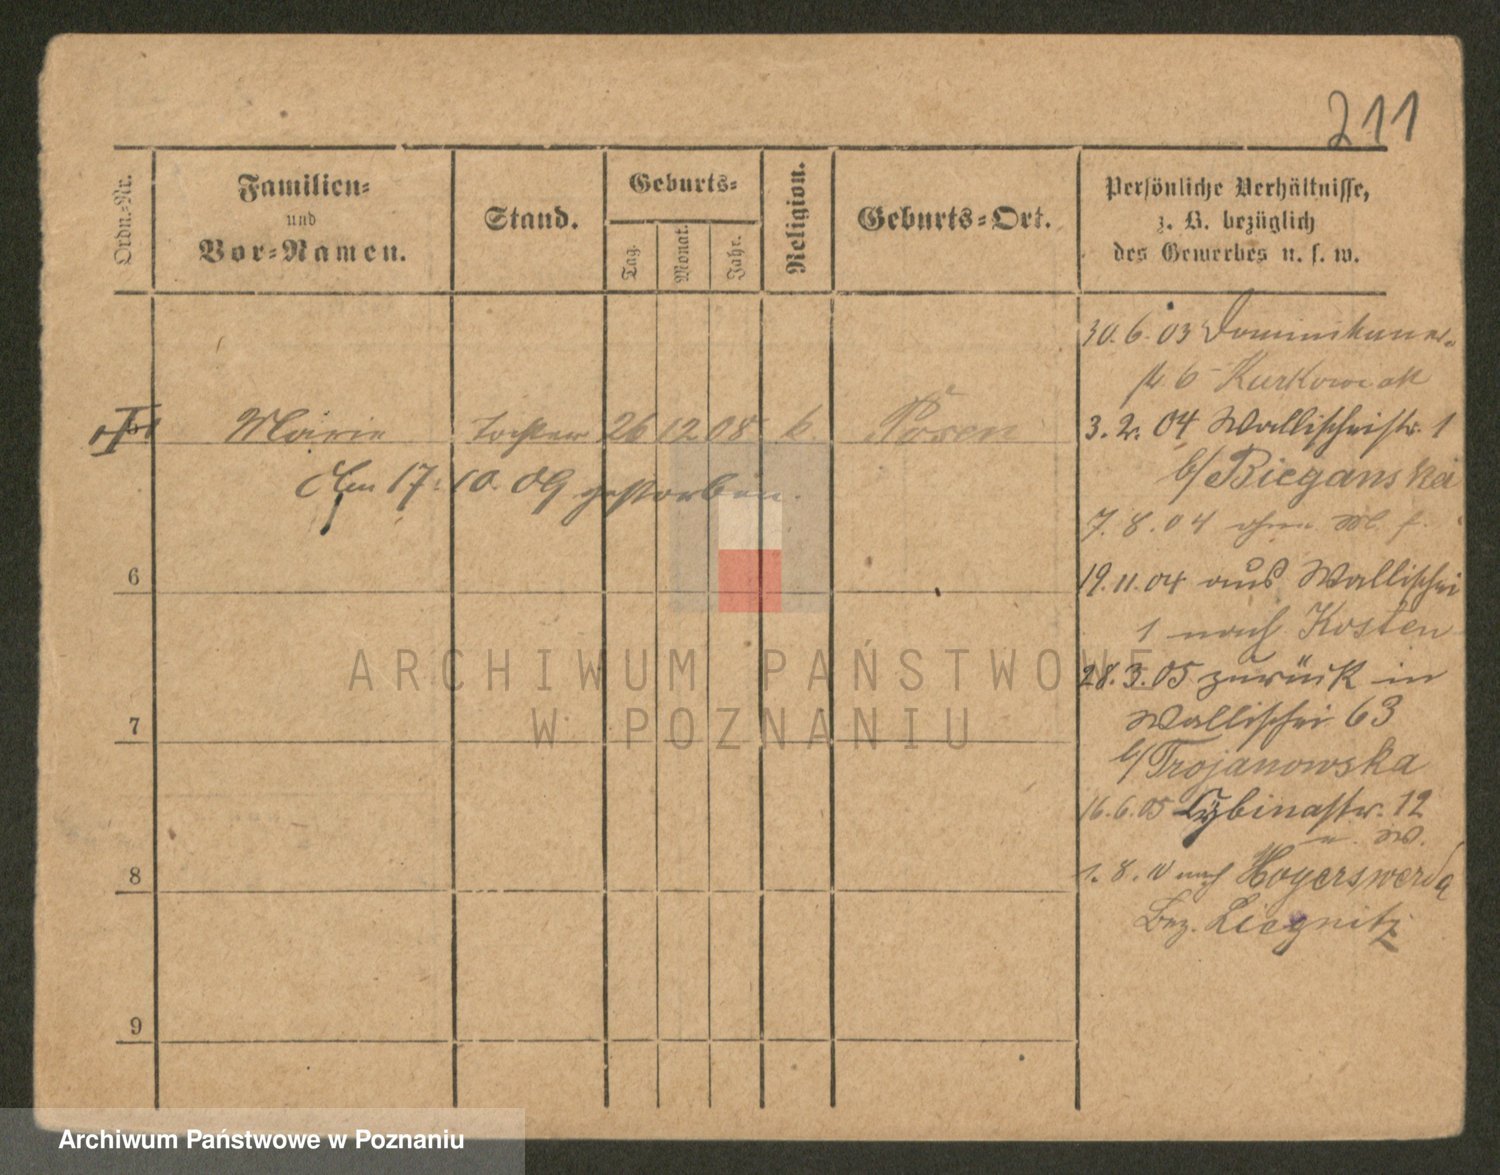 211
Ordn.-Nr.
Familien-
und
Vor-Namen.
Stand.
Geburts-
Tag.
Monat.
Jahr.
Religion.
Geburts-Ort.
Persönliche Verhältnisse,
z. B. bezüglich
des Gewerbes u. s. w.
30.6.03 Dominikaner-
6 Kurkowiak
5 Marie Tochter 26 12 08 k. Posen
3.2.04 Wallischeistr. 1
Am 17.10.09 gestorben.
b/ Bieganska
7.8.04 ohne
6
19.11.04 aus Wallischei
1 nach Kosten
28.3.05 zurück in
7
Wallischei 63
b/ Trojanowska
16.6.05 Cybinastr. 12
u. W.
8
1.8.10 nach Hoyerswerda
Bez. Liegnitz
9
ARCHIWUM PAŃSTWOWE
W POZNANIU
Archiwum Państwowe w Poznaniu